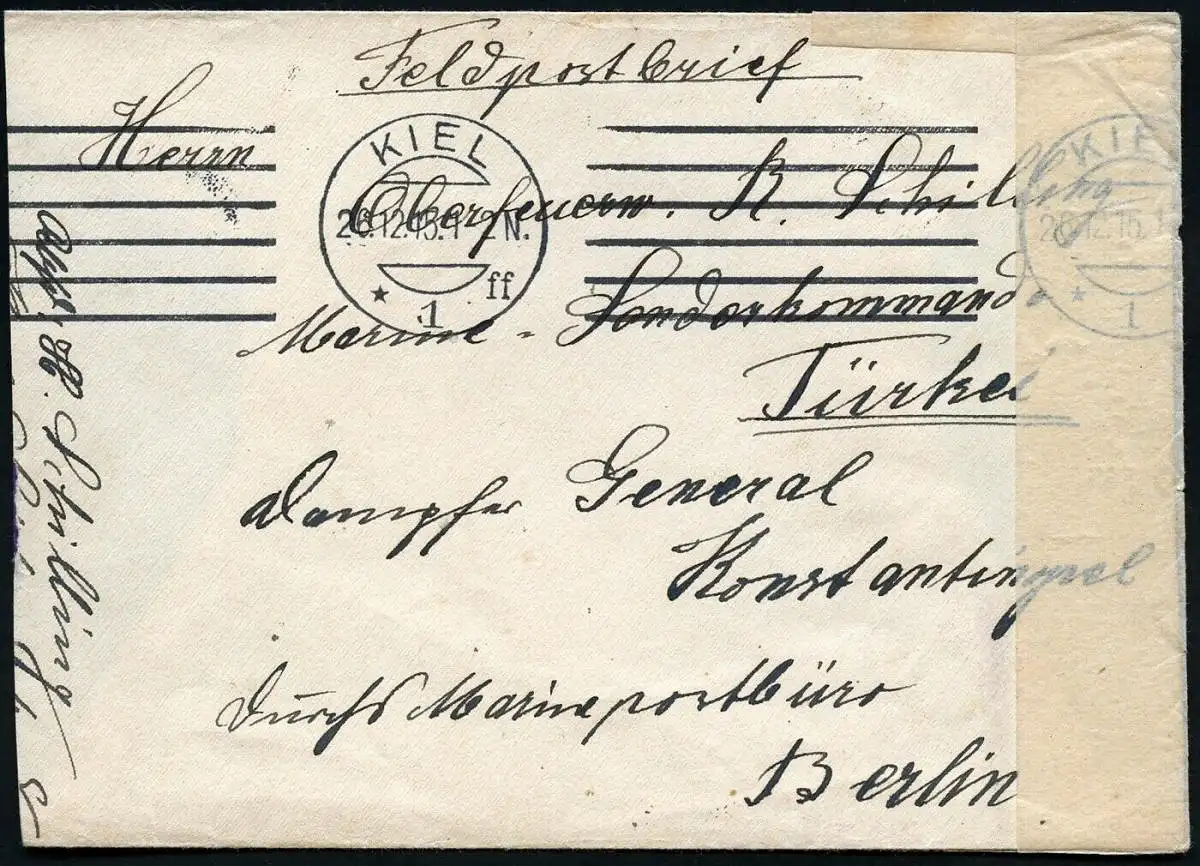 Feldpostbrief
Herrn
KIEL
26.12.15.1-2N.
* 1 ff
Oberfeuerw. R. Schilling
Marine-Sonderkommando
Türkei
Dampfer General
Konstantinopel
durchs Marinepostbüro
Berlin
KIEL
26.12.15.1
* 1
H. Schilling